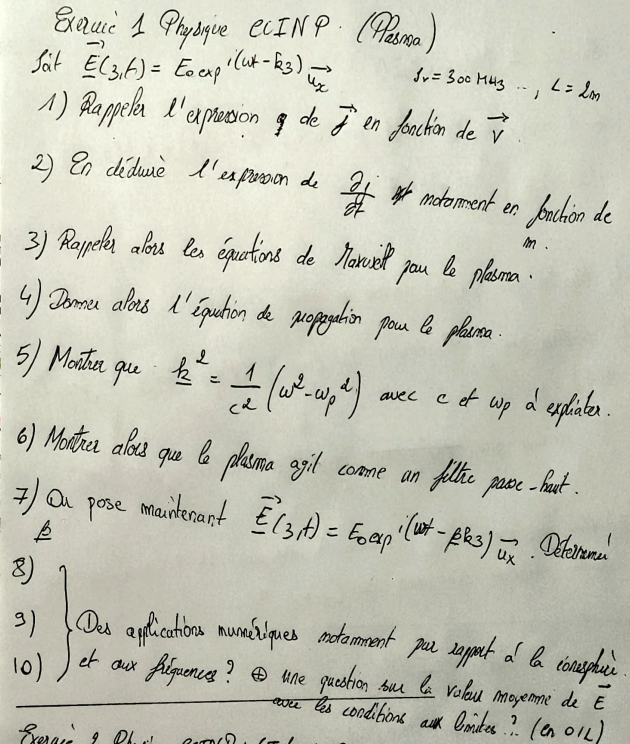 Exercice 1 Physique CCINP. (Plasma)
Soit E(z,t) = E₀ exp i(ωt - kz) u_x   f_v = 300 MHz ..., L = 2m
1) Rappeler l'expression de j en fonction de v.
2) En déduire l'expression de ∂j/∂t notamment en fonction de
m.
3) Rappeler alors les équations de Maxwell pour le plasma.
4) Donner alors l'équation de propagation pour le plasma.
5) Montrer que k² = 1/c² (ω² - ωp²) avec c et ωp à expliciter.
6) Montrer alors que le plasma agit comme un filtre passe-haut.
7) On pose maintenant E(z,t) = E₀ exp i(ωt - βkz) u_x. Déterminer
β
8)
9) Des applications numériques notamment par rapport à la ionosphère
10) et aux fréquences ? ⊕ une question sur la valeur moyenne de E
avec les conditions aux limites ? (en 0 & L)
Exercice 2